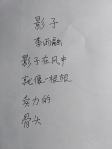 影子
李雨融
影子在风中
就像一根根
卖力的
骨头